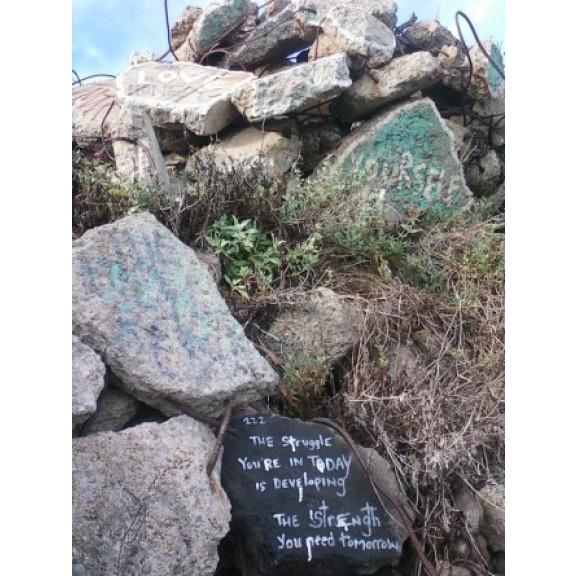 LOVE
YOURSELF
222
THE Struggle
You'RE IN TODAY
IS DEVElOPING
THE StrENGth
You need tomorrow